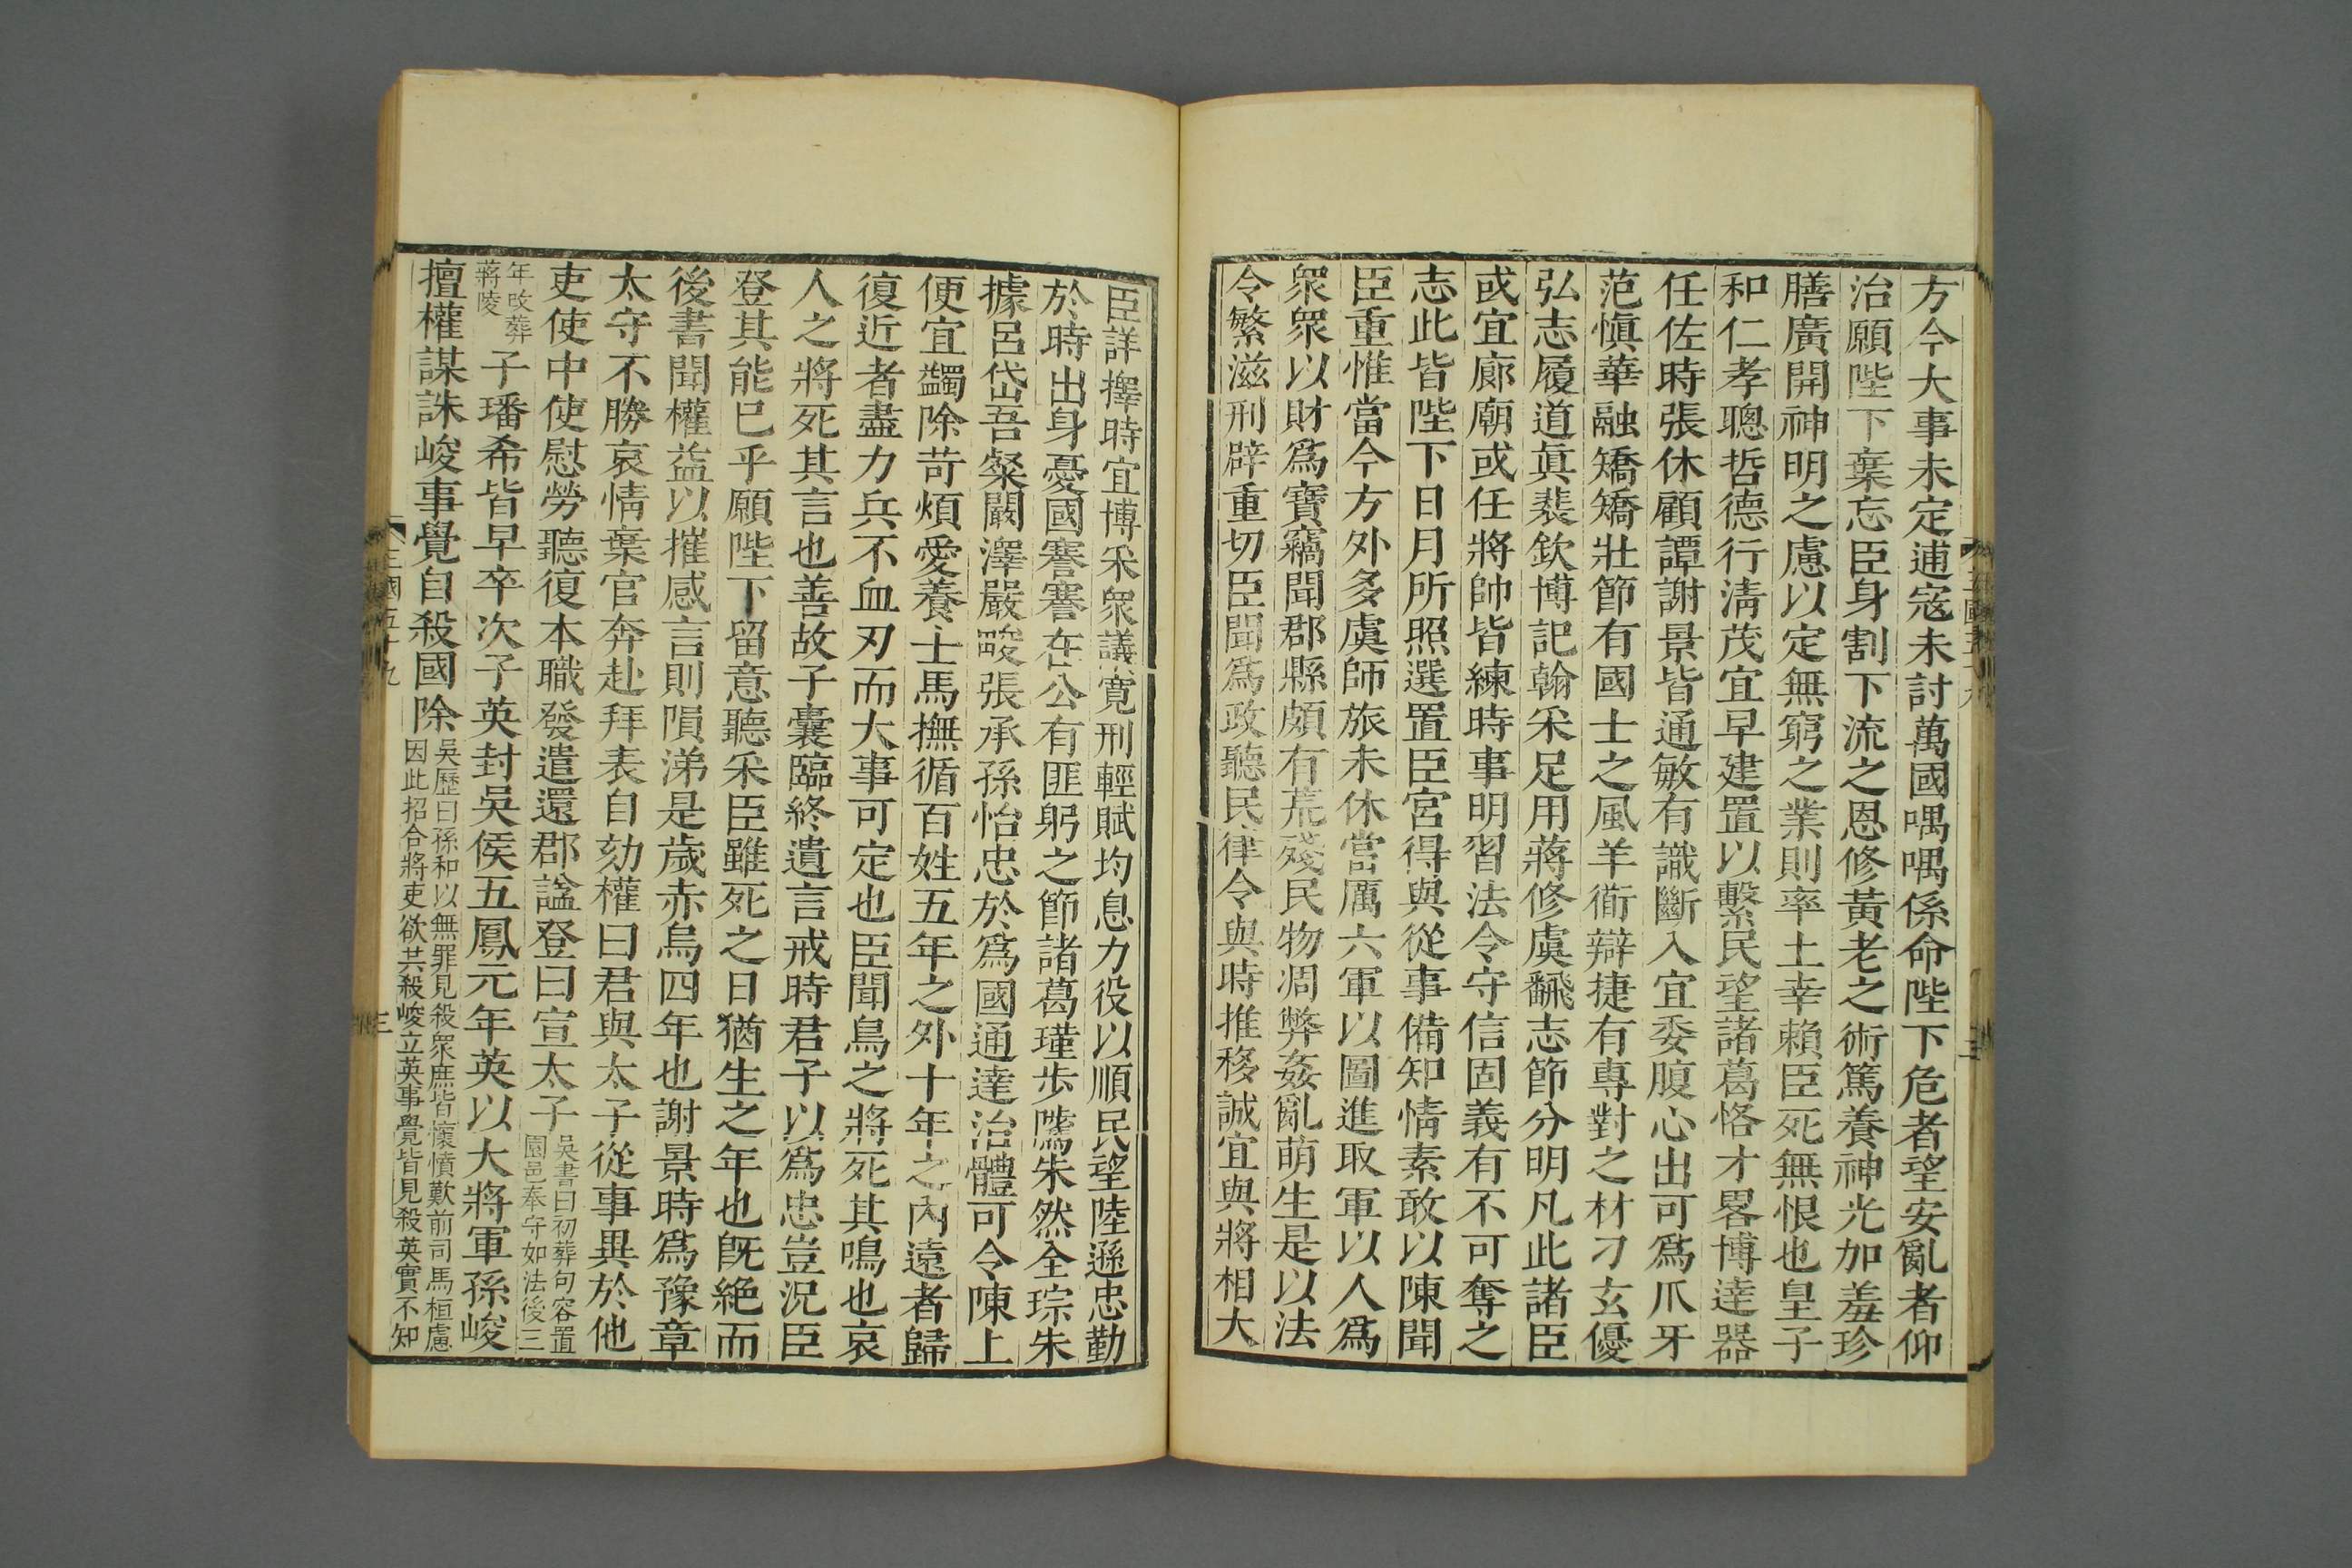 方今大事未定逋寇未討萬國喁喁係命陛下危者望安亂者仰
治願陛下棄忘臣身割下流之恩修黃老之術篤養神光加羞珍
膳廣開神明之慮以定無窮之業則率土幸賴臣死無恨也皇子
和仁孝聰哲德行清茂宜早建置以繫民望諸葛恪才畧博達器
任佐時張休顧譚謝景皆通敏有識斷入宜委腹心出可爲爪牙
范愼華融矯矯壯節有國士之風羊衜辯捷有專對之材刁玄優
弘志履道眞裴欽博記翰采足用蔣修虞翻志節分明凡此諸臣
或宜廊廟或任將帥皆練時事明習法令守信固義有不可奪之
志此皆陛下日月所照選置臣宮得與從事備知情素敢以陳聞
臣重惟當今方外多虞師旅未休當厲六軍以圖進取軍以人爲
衆衆以財爲寶竊聞郡縣頗有荒殘民物凋弊姦亂萌生是以法
令繁滋刑辟重切臣聞爲政聽民律令與時推移誠宜與將相大
臣詳擇時宜博采衆議寬刑輕賦均息力役以順民望陸遜忠勤
於時出身憂國謇謇在公有匪躬之節諸葛瑾步隲朱然全琮朱
據呂岱吾粲闞澤嚴畯張承孫怡忠於爲國通達治體可令陳上
便宜蠲除苛煩愛養士馬撫循百姓五年之外十年之內遠者歸
復近者盡力兵不血刃而大事可定也臣聞鳥之將死其鳴也哀
人之將死其言也善故子囊臨終遺言戒時君子以爲忠豈況臣
登其能已乎願陛下留意聽采臣雖死之日猶生之年也旣絶而
後書聞權益以摧感言則隕涕是歲赤烏四年也謝景時爲豫章
太守不勝哀情棄官奔赴拜表自劾權曰君與太子從事異於他
吏使中使慰勞聽復本職發遣還郡謚登曰宣太子吳書曰初葬句容置
園邑奉守如法後三
年改葬
蔣陵子璠希皆早卒次子英封吳侯五鳳元年英以大將軍孫峻
擅權謀誅峻事覺自殺國除吳歷曰孫和以無罪見殺衆庶皆懷憤歎前司馬桓慮
因此招合將吏欲共殺峻立英事覺皆見殺英實不知
三國五十九
三